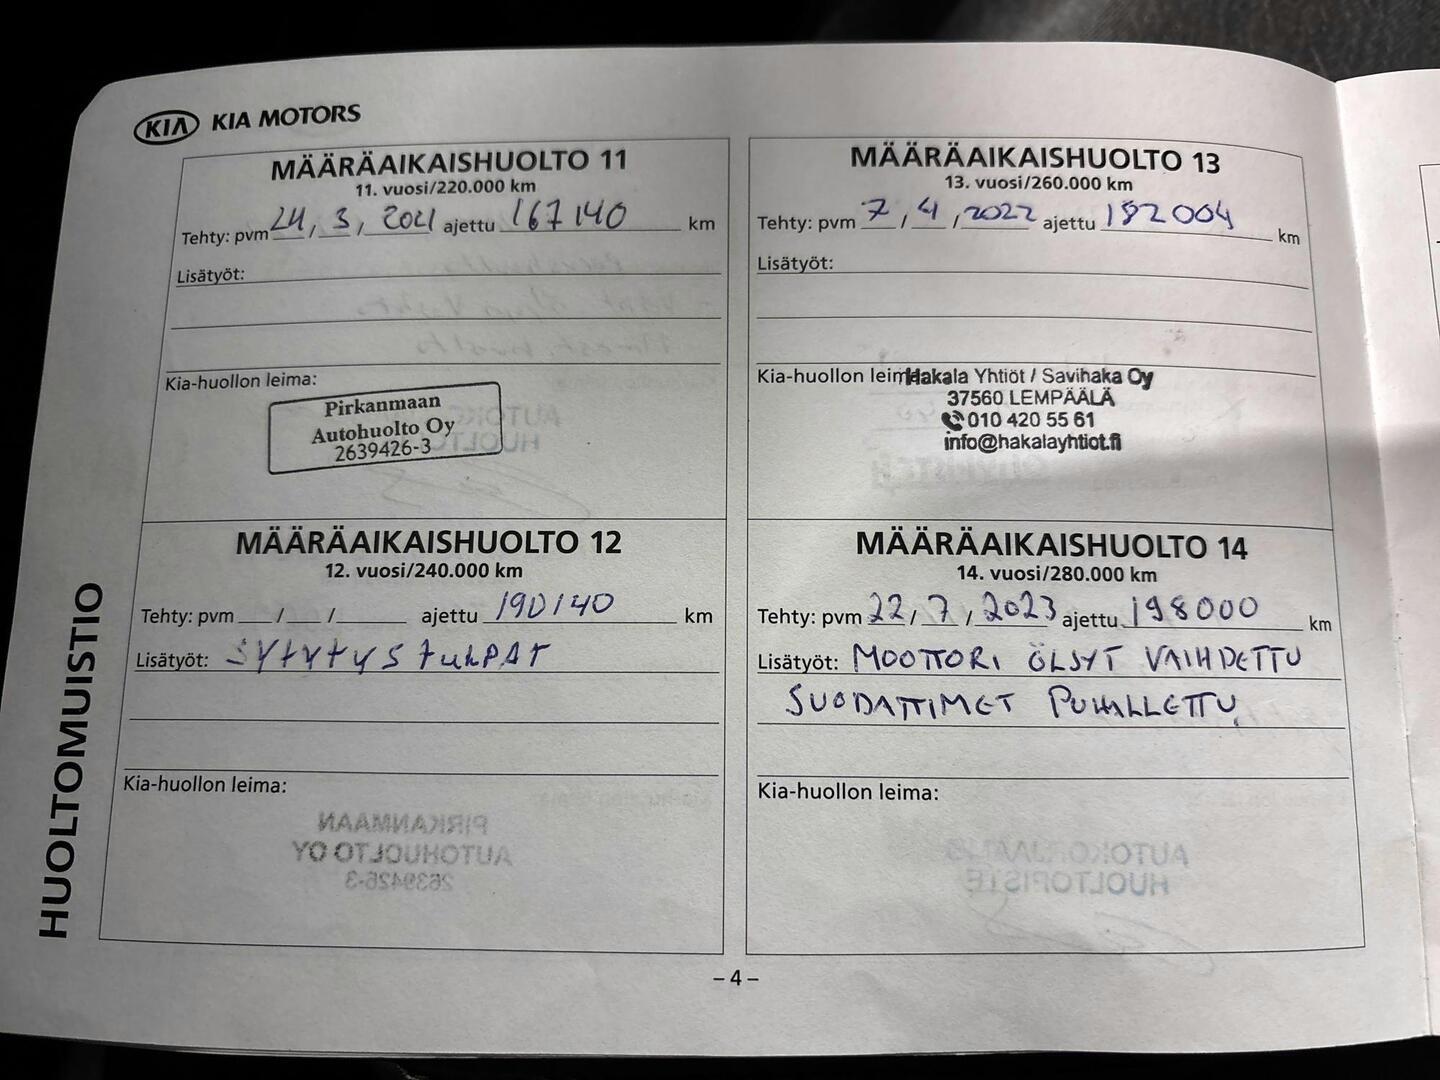 KIA KIA MOTORS
HUOLTOMUISTIO
MÄÄRÄAIKAISHUOLTO 11
11. vuosi/220.000 km
Tehty: pvm 24, 3, 2021 ajettu 167140 km
Lisätyöt:
Kia-huollon leima:
Pirkanmaan
Autohuolto Oy
2639426-3
MÄÄRÄAIKAISHUOLTO 12
12. vuosi/240.000 km
Tehty: pvm / / ajettu 190140 km
Lisätyöt: SYTYTYSTULPAT
Kia-huollon leima:
PIRKANMAAN
AUTOHUOLTO OY
2639426-3
MÄÄRÄAIKAISHUOLTO 13
13. vuosi/260.000 km
Tehty: pvm 7 / 4 / 2022 ajettu 182004 km
Lisätyöt:
Kia-huollon leima:
Hakala Yhtiöt / Savihaka Oy
37560 LEMPÄÄLÄ
010 420 55 61
info@hakalayhtiot.fi
MÄÄRÄAIKAISHUOLTO 14
14. vuosi/280.000 km
Tehty: pvm 22, 7, 2023 ajettu 198000 km
Lisätyöt: MOOTTORI ÖLJYT VAIHDETTU
SUODATTIMET PUHALLETTU.
Kia-huollon leima:
HUOLTOPISTE
– 4 –